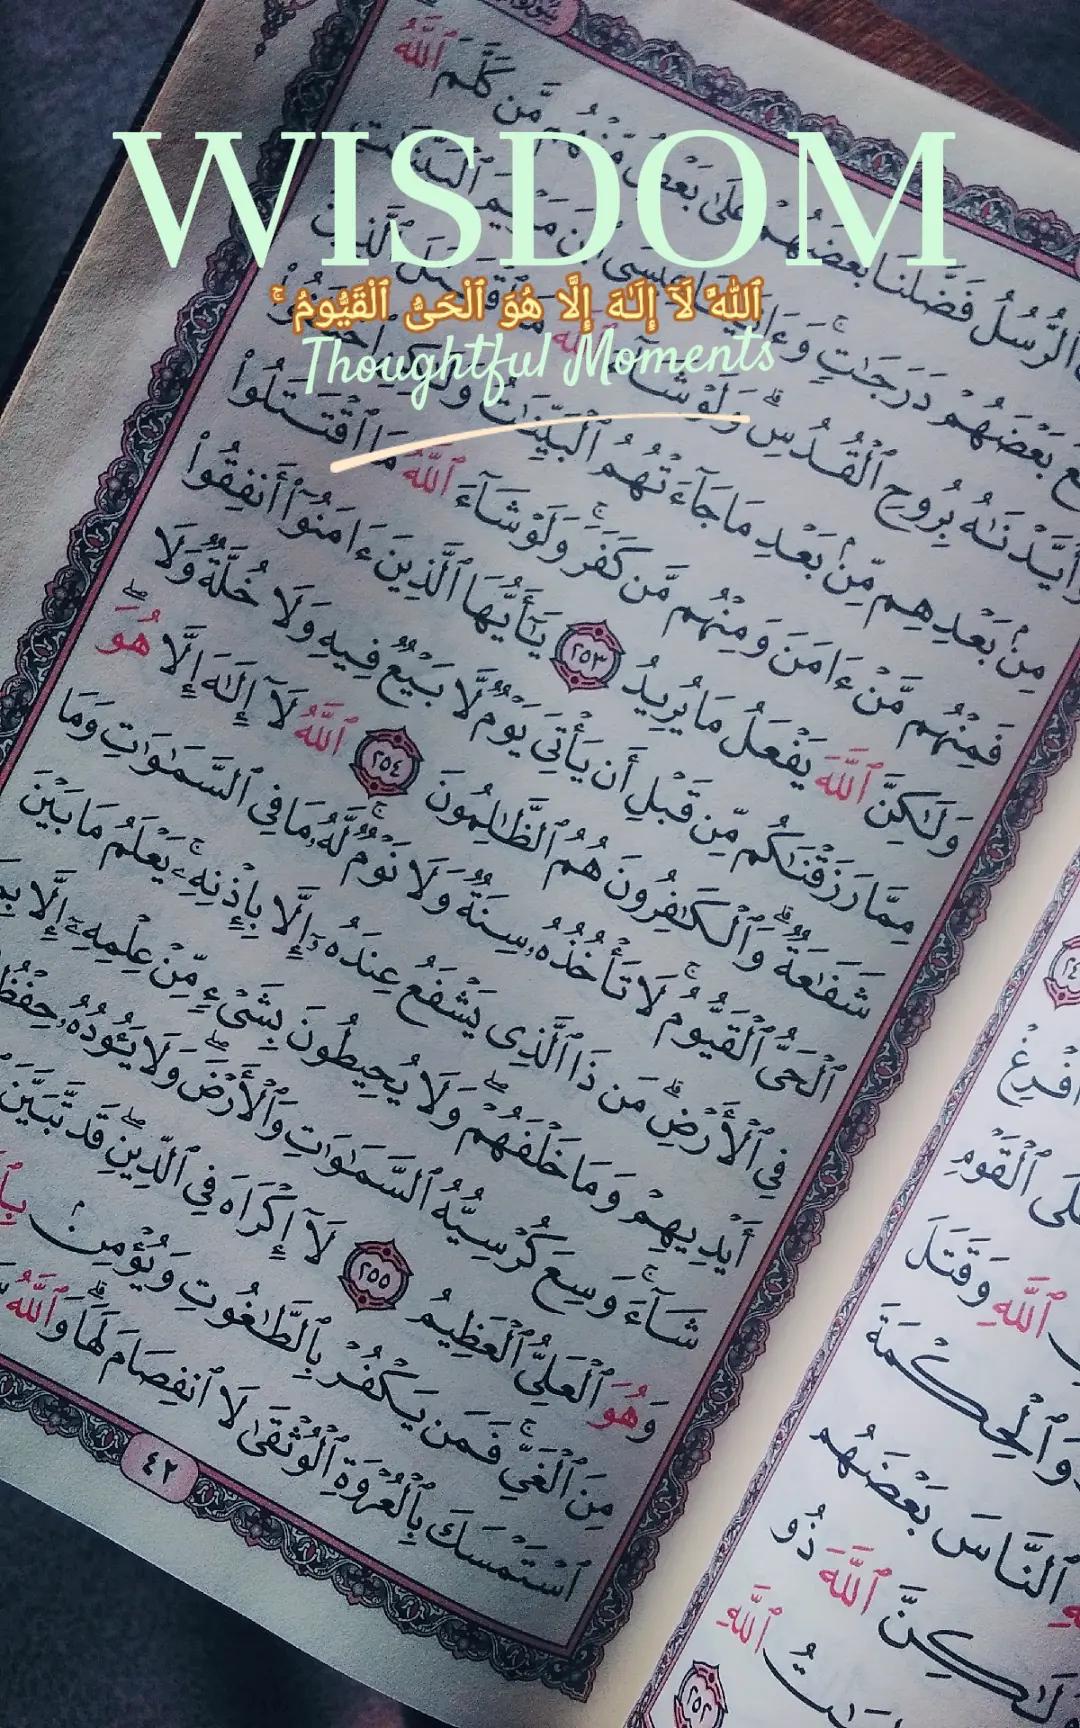 WISDOM
ٱللَّهُ لَآ إِلَـٰهَ إِلَّا هُوَ ٱلْحَىُّ ٱلْقَيُّومُ ۚ
Thoughtful Moments
ٱلرُّسُلُ فَضَّلْنَا بَعْضَهُمْ عَلَىٰ بَعْضٍ مِّنْهُم مَّن كَلَّمَ ٱللَّهُ
بَعْضَهُمْ دَرَجَـٰتٍ ۚ وَءَاتَيْنَا عِيسَى ٱبْنَ مَرْيَمَ ٱلْبَيِّنَـٰتِ
وَأَيَّدْنَـٰهُ بِرُوحِ ٱلْقُدُسِ ۗ وَلَوْ شَآءَ ٱللَّهُ مَا ٱقْتَتَلَ ٱلَّذِينَ
مِنۢ بَعْدِهِم مِّنۢ بَعْدِ مَا جَآءَتْهُمُ ٱلْبَيِّنَـٰتُ وَلَـٰكِنِ ٱخْتَلَفُوا۟
فَمِنْهُم مَّنْ ءَامَنَ وَمِنْهُم مَّن كَفَرَ ۚ وَلَوْ شَآءَ ٱللَّهُ مَا ٱقْتَتَلُوا۟
وَلَـٰكِنَّ ٱللَّهَ يَفْعَلُ مَا يُرِيدُ ٢٥٣ يَـٰٓأَيُّهَا ٱلَّذِينَ ءَامَنُوٓا۟ أَنفِقُوا۟
مِمَّا رَزَقْنَـٰكُم مِّن قَبْلِ أَن يَأْتِىَ يَوْمٌ لَّا بَيْعٌ فِيهِ وَلَا خُلَّةٌ وَلَا
شَفَـٰعَةٌ ۗ وَٱلْكَـٰفِرُونَ هُمُ ٱلظَّـٰلِمُونَ ٢٥٤ ٱللَّهُ لَآ إِلَـٰهَ إِلَّا هُوَ
ٱلْحَىُّ ٱلْقَيُّومُ ۚ لَا تَأْخُذُهُۥ سِنَةٌ وَلَا نَوْمٌ ۚ لَّهُۥ مَا فِى ٱلسَّمَـٰوَٰتِ وَمَا
فِى ٱلْأَرْضِ ۗ مَن ذَا ٱلَّذِى يَشْفَعُ عِندَهُۥٓ إِلَّا بِإِذْنِهِۦ ۚ يَعْلَمُ مَا بَيْنَ
أَيْدِيهِمْ وَمَا خَلْفَهُمْ ۖ وَلَا يُحِيطُونَ بِشَىْءٍ مِّنْ عِلْمِهِۦٓ إِلَّا
شَآءَ ۚ وَسِعَ كُرْسِيُّهُ ٱلسَّمَـٰوَٰتِ وَٱلْأَرْضَ ۖ وَلَا يَـُٔودُهُۥ
وَهُوَ ٱلْعَلِىُّ ٱلْعَظِيمُ ٢٥٥ لَآ إِكْرَاهَ فِى ٱلدِّينِ ۖ قَد تَّبَيَّنَ
مِنَ ٱلْغَىِّ ۚ فَمَن يَكْفُرْ بِٱلطَّـٰغُوتِ وَيُؤْمِنۢ
ٱسْتَمْسَكَ بِٱلْعُرْوَةِ ٱلْوُثْقَىٰ لَا ٱنفِصَامَ لَهَا ۗ وَٱللَّهُ
٤٢
ٱلْقَوْمِ
ٱللَّهِ وَقَتَلَ
وَٱلْحِكْمَةَ
ٱلنَّاسَ بَعْضَهُم
ٱللَّهَ ذُو
ٱللَّهِ